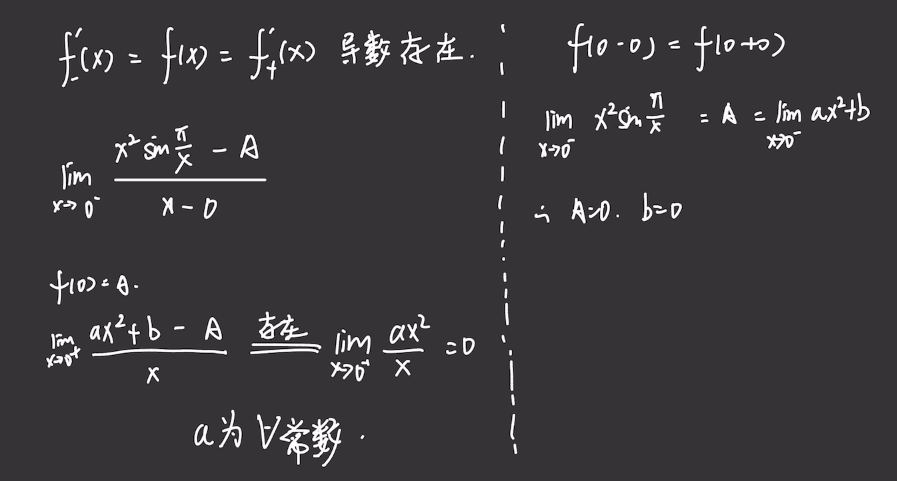 f₋′(x) = f(x) = f₊′(x) 导数存在.
lim x→0⁻ (x² sin π/x − A)/(x − 0)
f(0)=A.
lim x→0⁺ (ax²+b − A)/x 存在 = lim x→0⁻ ax²/x = 0
a为∀常数.
f(0-0) = f(0+0)
lim x→0⁻ x² sin π/x = A = lim x→0⁻ ax²+b
∴ A=0. b=0